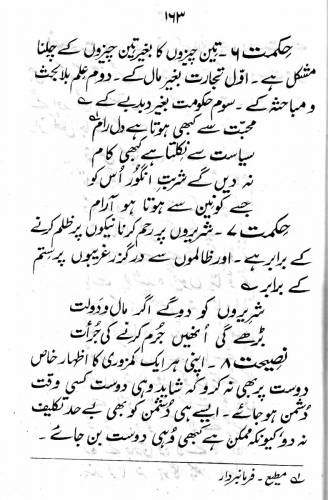 ۱۶۳
حِکمت ۶ ۔ تین چیزوں کا بغیر تین چیزوں کے چلنا
مشکل ہے ۔ اوّل تجارت بغیر مال کے ۔ دوم علِم بلا بحث
و مباحثہ کے ۔ سوم حکومت بغیر دبدبے کے ؎
محبّت سے کبھی ہوتا ہے دل رام لہ
سیاست سے نکلتا ہے کبھی کام
نہ دیں گے شربتِ انگور اُس کو
جسے کونین سے ہوتا ہو آرام
حِکمت ۷ ۔ شریروں پر رحم کرنا نیکوں پر ظلم کرنے
کے برابر ہے ۔ اور ظالموں سے درگزر غریبوں پر سِتم
کے برابر ؎
شریروں کو دو گے اگر مال و دولت
بڑھے گی اُنھیں جُرم کرنے کی جُرأت
نصیحت ۸ ۔ اپنی ہر ایک کمزوری کا اظہار خاص
دوست پر بھی نہ کرو کہ شاید وہی دوست کسی وقت
دُشمن ہو جائے ۔ ایسے ہی دُشمن کو بھی بے حد تکلیف
نہ دو ۔ کیونکہ ممکن ہے کبھی وُہی دوست بن جائے ۔
لہ مطیع ۔ فرمانبردار